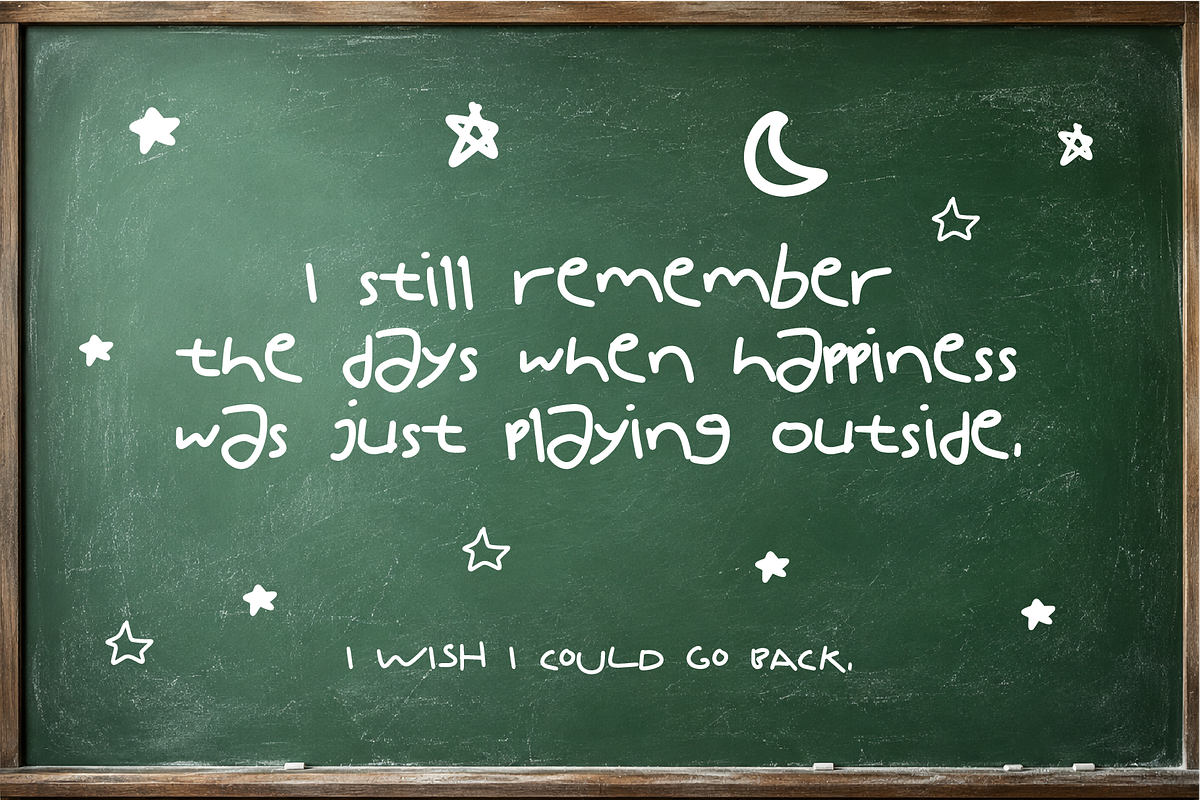 I still remember
the days when happiness
was just playing outside.
I WISH I COULD GO BACK.